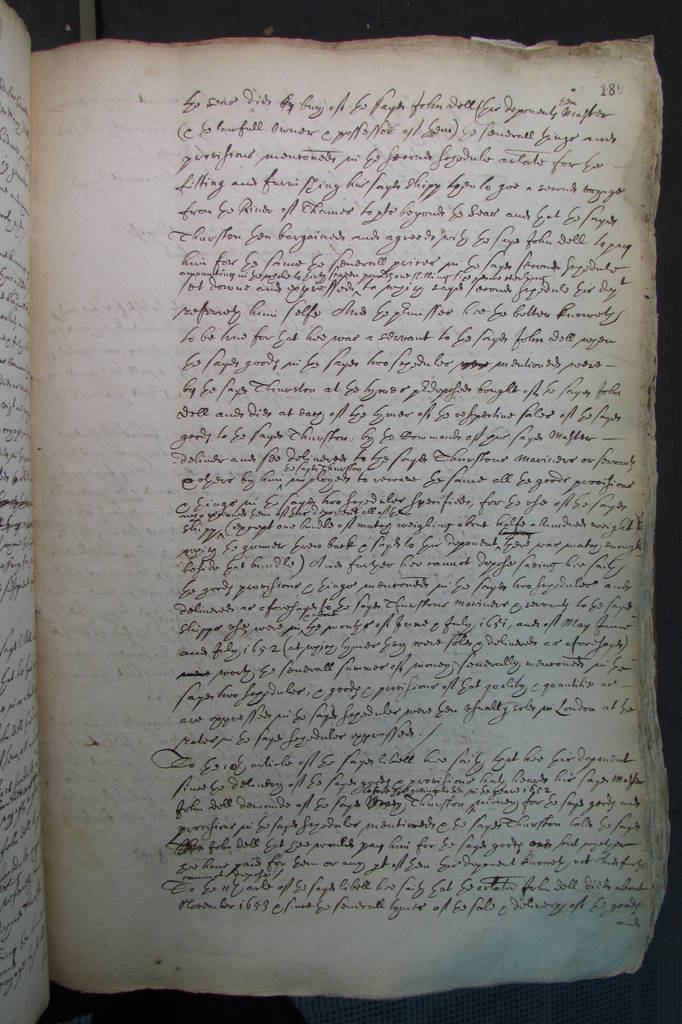 180
the said did by buy of the sayd John Dell (this deponents then Master
& the lawfull Owner & possessor of them) the severall things and
provisions mentioned in the second schedule arlate for the
fitting and furnishing his sayd shipp then to goe a second voyage
from the River of Thames to pts beyond the Seas and that the sayd
Thurston then bargained and agreed with the sayd John Dell to pay
him for the same the severall prices in the sayd second schedule
amounting in the whole to thirty pounds one shilling six pence sterling
set downe and expressed, to which sayd second schedule this dept
referreth himselfe And the premisses hee the better knoweth
to be true for that hee was a servant to the sayd John Dell when
the sayd goods in the sayd two schedules mentioned were
by the sayd Thurston at the tymes predeposed bought of the sayd John
Dell and did at each of the tymes of the respective sales of the sayd
goods to the sayd Thurston, by the Command of his sayd Master
deliver and see delivered to the sayd Thurstons Mariners or servants
& others by him the sayd Thurston imployed to receave the same all the goods provisions
& things in the sayd two schedules specified, for the use of the sayd
shipp, (except one bundle of match weighing about halfe a hundred weight
which the gunner threw back & sayd to this deponent there was match enough
beside that bundle) And further hee cannot depose saving hee saith
the goods provisions & things mentioned in the sayd two schedules and
delivered as aforesayd to the sayd Thurstons Mariners & servants to the sayd
shipps use, were in the months of June & July 1651, and of May June
and July 1652 (at which tymes they were sold & delivered as aforesayd)
worth the severall summes of money severally mentioned in the
sayd two schedules, & goods & provisions of that quality & quantitie as
are expressed in the sayd schedules were then usually sold in London at the
rates in the sayd schedules expressed./
To the 10th article of the sayd libell hee saith that hee this deponent
since the delivery of the sayd goods & provisions hath heard his sayd Master
before his going to sea in the yeare 1652
John Dell demande of the sayd Thurston money for the sayd goods and
provisions in the sayd schedules mentioned & the sayd Thurston tolde the sayd
John Dell that hee would pay him for the sayd goods but whether
hee have paid for them or any pt of them this deponent knoweth not And further
cannot depose
To the 11th arle of the sayd libell hee saith that the arlate John Dell died about
November 1653 & since the severall tymes of the sale & delivery of the goods
and